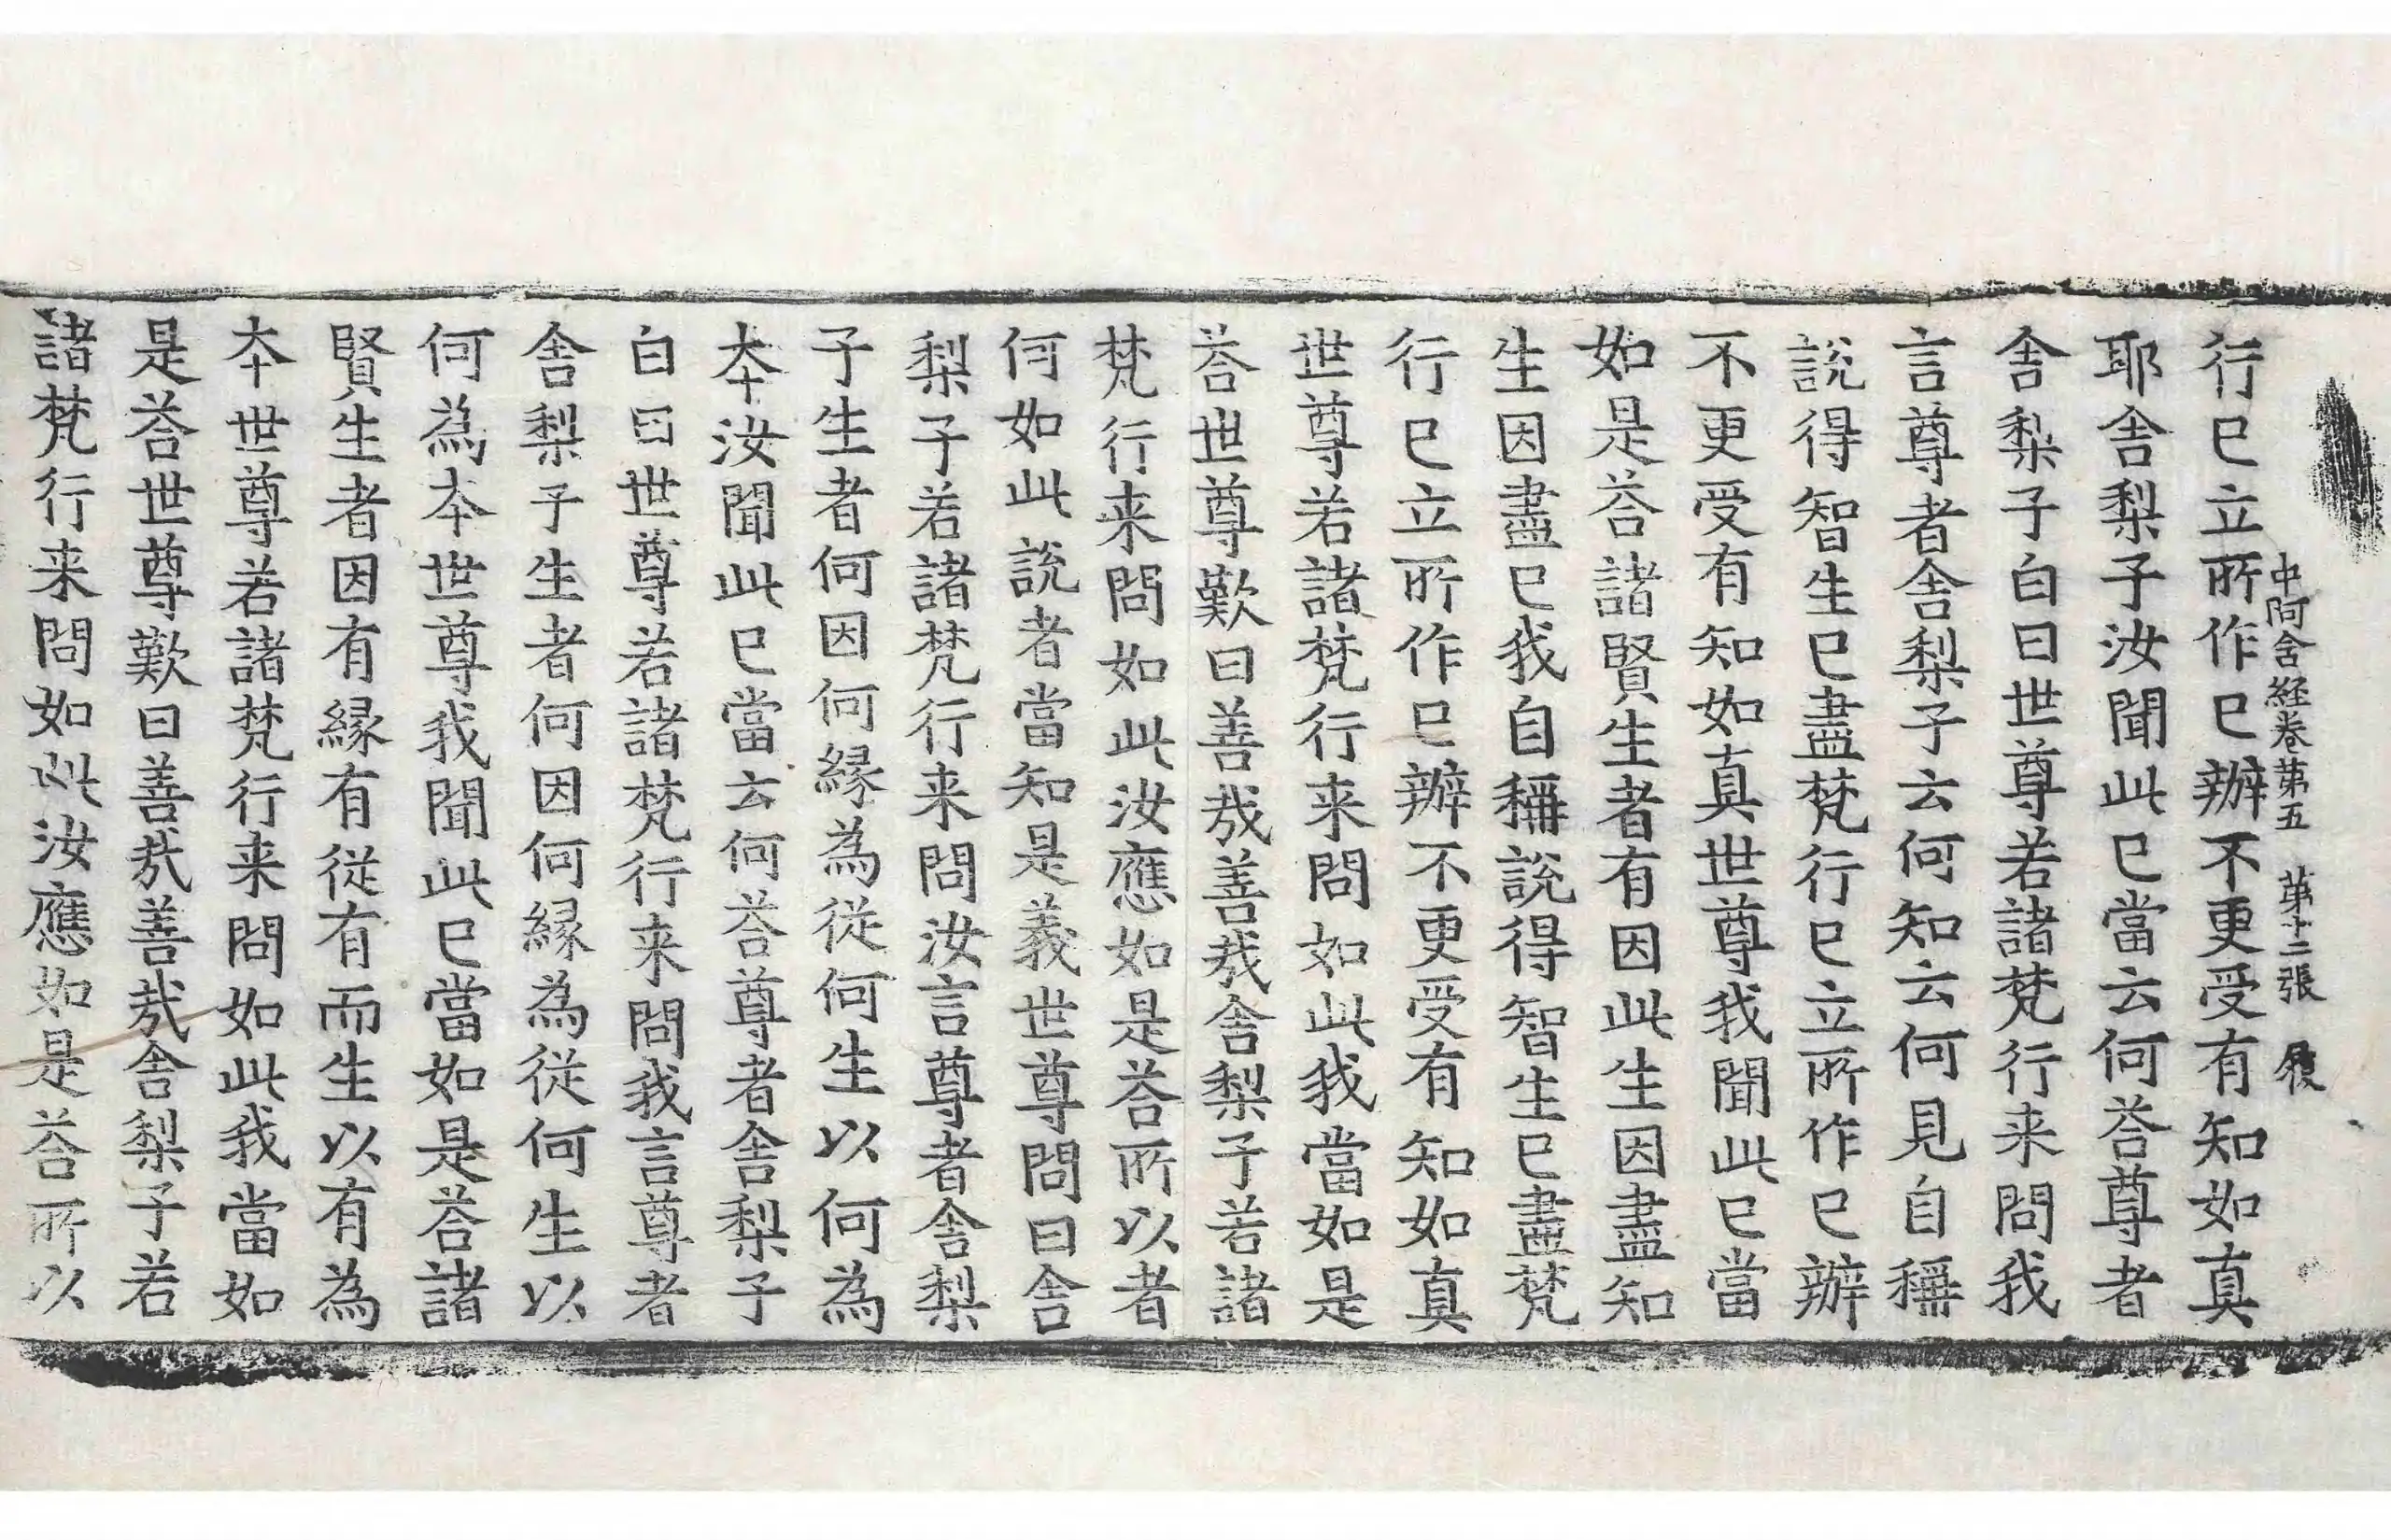 中阿含経卷苐五 苐十二張 履
行已立所作已辦不更受有知如真
耶舍梨子汝聞此已當云何荅尊者
舍梨子白曰世尊若諸梵行来問我
言尊者舍梨子云何知云何見自稱
説得智生已盡梵行已立所作已辦
不更受有知如真世尊我聞此已當
如是荅諸賢生者有因此生因盡知
生因盡已我自稱説得智生已盡梵
行已立所作已辦不更受有知如真
世尊若諸梵行来問如此我當如是
荅世尊歎曰善㢤善㢤舍梨子若諸
梵行来問如此汝應如是荅所以者
何如此説者當知是義世尊問曰舍
梨子若諸梵行来問汝言尊者舍梨
子生者何因何縁為從何生以何為
本汝聞此已當云何荅尊者舍梨子
白曰世尊若諸梵行来問我言尊者
舍梨子生者何因何縁為從何生以
何為本世尊我聞此已當如是荅諸
賢生者因有縁有從有而生以有為
本世尊若諸梵行来問如此我當如
是荅世尊歎曰善㢤善㢤舍梨子若
諸梵行来問如此汝應如是荅所以